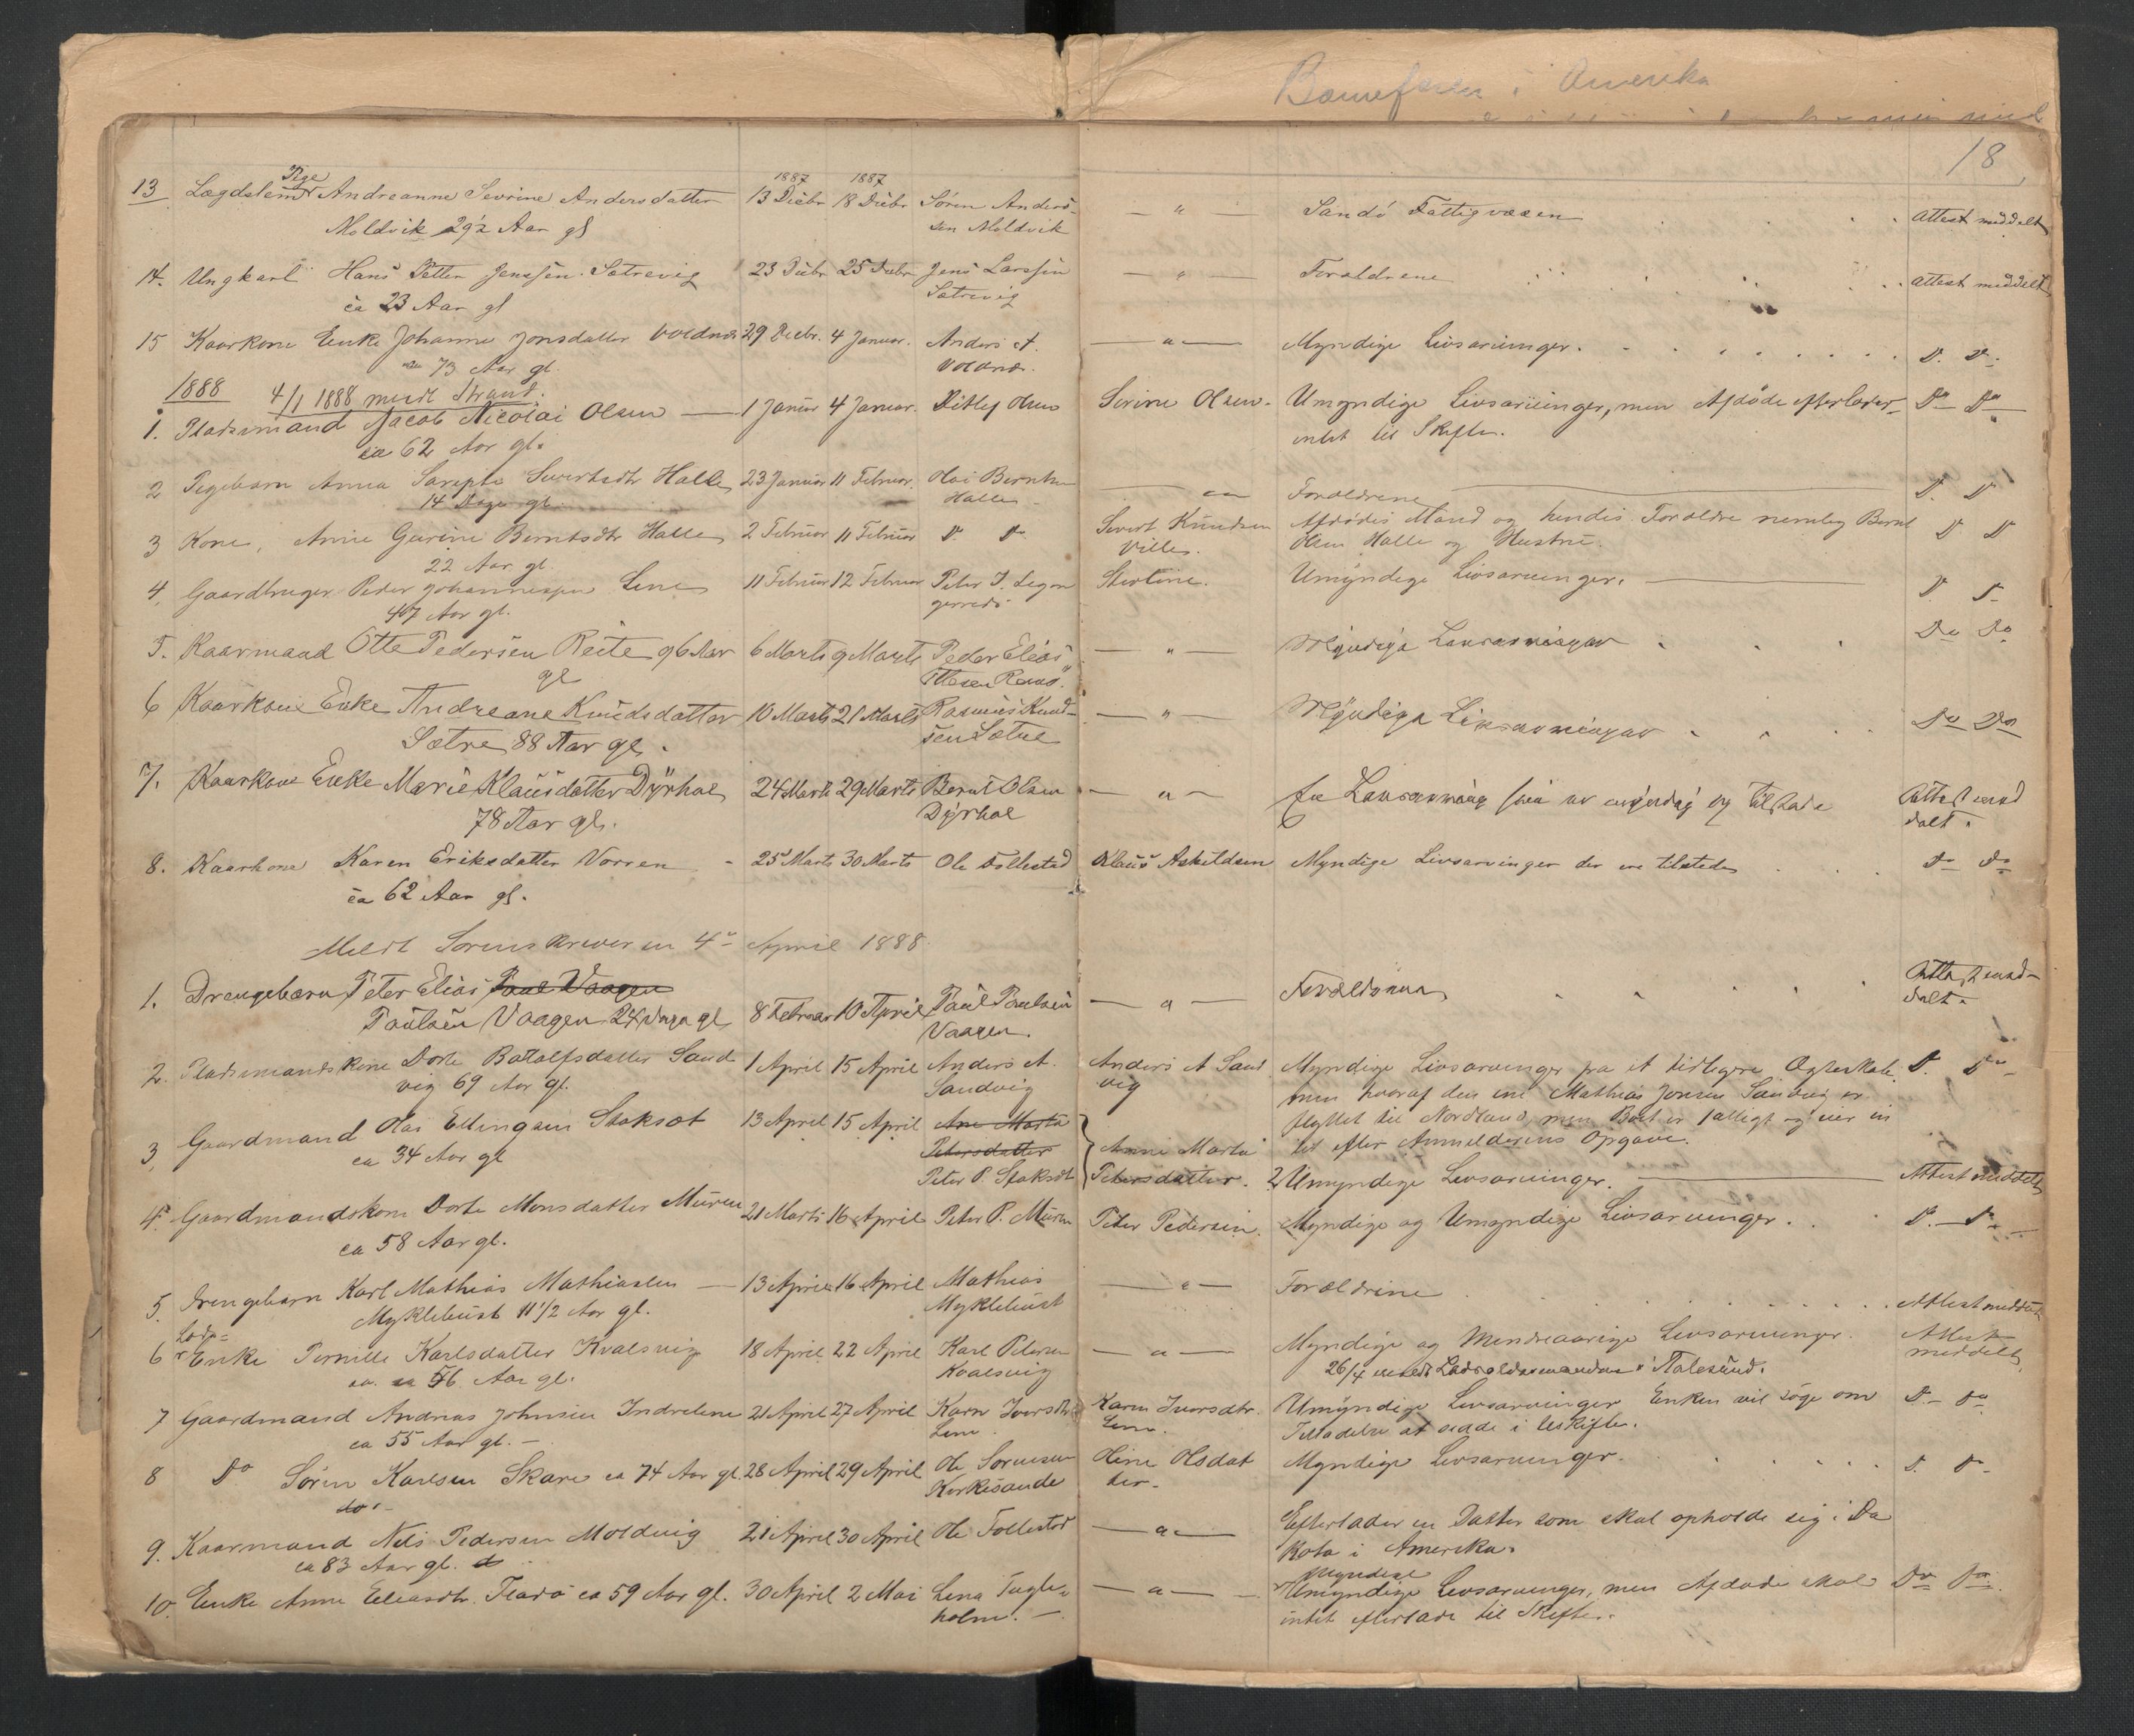 Barnefaren i Amerika
18
Pige
1887 1887
13 Lægdslem Andreanne Sevrine Andersdatter 13 Decbr 18 Decbr Søren Anders- — " — Sandø Fattigvæsen Attest meddelt
Moldvik 29½ Aar gl sen Moldvik
14. Ungkarl Hans Petter Jenssen Sætrevig 23 Decbr 25 Decbr Jens Larssen — " — Forældrene Attest meddelt
ca 23 Aar gl Sætrevig
15 Kaarkone Enke Johanne Jonsdatter Voldnes 29 Decbr. 4 Januar. Anders A. — " — Myndige Livsarvinger. D. D.
73 Aar gl. Voldnes.
1888 4/1 1888 meldt Strand.
1. Pladsmand Jacob Nicolai Olsen — 1 Januar 4 Januar. Ditlef Olsen Serine Olsen. Umyndige Livsarvinger, men Afdøde efterlader Do Do
ca 62 Aar gl. intet til Skifte.
2 Pigebarn Anna Sarepta Sivertsdtr Halle 23 Januar 11 Februar. Olai Berntsen — " Forældrene — D. D
14 Dage gl. Halle
3 Kone, Anne Gurine Berntsdtr Halle 2 Februar 11 Februar D D Sivert Knudsen Afdødes Mand og hendes Forældre nemlig Bernt D D
22 Aar gl. Ville. Olsen Halle og Hustru.
4, Gaardbruger Peder Johannessen Lene 11 Februar 12 Februar Peter J. Umyndige Livsarvinger. — D. D
47 Aar gl.
5. Kaarmand Otte Pedersen Reite 96 Aar 6 Marts 9 Marts Peder Elias — " — Myndige Livsarvinger Do Do
gl Ottesen
6 Kaarkone Enke Andreane Knudsdatter 10 Marts 21 Marts Rasmus Knud- — " — Myndige Livsarvinger Do Do
Sætre 88 Aar gl. sen Sætre
7. Kaarkone Enke Marie Klausdatter Dyrhol 24 Marts 29 Marts Bernt Olsen — " — en Livsarving som er myndig og tilstede Attest med
78 Aar gl. Dyrhol delt.
8. Kaarkone Karen Eriksdatter Vorren 25 Marts 30 Marts Ole Follestad Klaus Askeldsen Myndige Livsarvinger der ere tilstede Do Do
ca 62 Aar gl.
Meldt Sorenskriveren 4de April 1888.
1. Drengebarn Peter Elias Paul Vaagen Attest med-
Paulsen Vaagen 24 Dage gl. 8 Februar 10 April Paul Paulsen — " — Forældrene delt.
Vaagen.
2. Pladsmandskone Dorte Botolfsdatter Sand 1 April 15 April Anders A. Anders A Sand Myndige Livsarvinger fra et tidligere Ægteskab D. Do
vig 69 Aar gl. Sandvig vig men hvoraf den ene Mathias Jonsen Sandvig er
flyttet til Nordland, men Boet er fattigt og eier in
tet efter Anmelderens Opgave.
3, Gaardmand Olai Ellingsen Stoksøt 13 April 15 April Ane Marta Anne Marta
ca 34 Aar gl Petersdatter Petersdatter. 2 Umyndige Livsarvinger. — Attest meddelt
Peter P. Stoksøt
4. Gaardmandskone Dorte Monsdatter Muren 21 Marts 16 April Peter P. Muren Peter Pedersen. Myndige og Umyndige Livsarvinger. D. D.
ca 58 Aar gl.
5. Drengebarn Karl Mathias Mathiassen — 13 April 16 April Mathias — " — Forældrene Attest meddelt
Myklebust 11½ Aar gl. Myklebust
6 Enke Pernille Karlsdatter Kvalsvig 18 April 22 April Karl Petersen — " — Myndige og Mindreaarige Livsarvinger. Attest
ca. 56 Aar gl. Kvalsvig 26/4 meldt i Aalesund. meddelt
7 Gaardmand Andreas Johnsen Indrelene 21 April 27 April Karen Iversdtr Karen Iversdtr. Umyndige Livsarvinger Enken vil søge om D.- Do
ca 55 Aar gl. — Lene. Lene. Tilladelse at sidde i Uskifte.
8 Do Søren Karlsen Skare ca 74 Aar gl. 28 April 29 April Ole Sørensen Oline Olsdat Myndige Livsarvinger. D. D.
Kirkesande ter.
9. Kaarmand Nils Pedersen Moldvig 21 April 30 April Ole Follestad — " — Efterlader en Datter som skal opholde sig i Da
ca 83 Aar gl. kota i Amerika.
Myndige
10. Enke Anne Eliasdtr. Flaadø ca 59 Aar gl. 30 April 2 Mai Lena Tagle — " — Umyndige Livsarvinger, men Afdøde skal Do Do.
holm. — intet efterlade til Skifte.